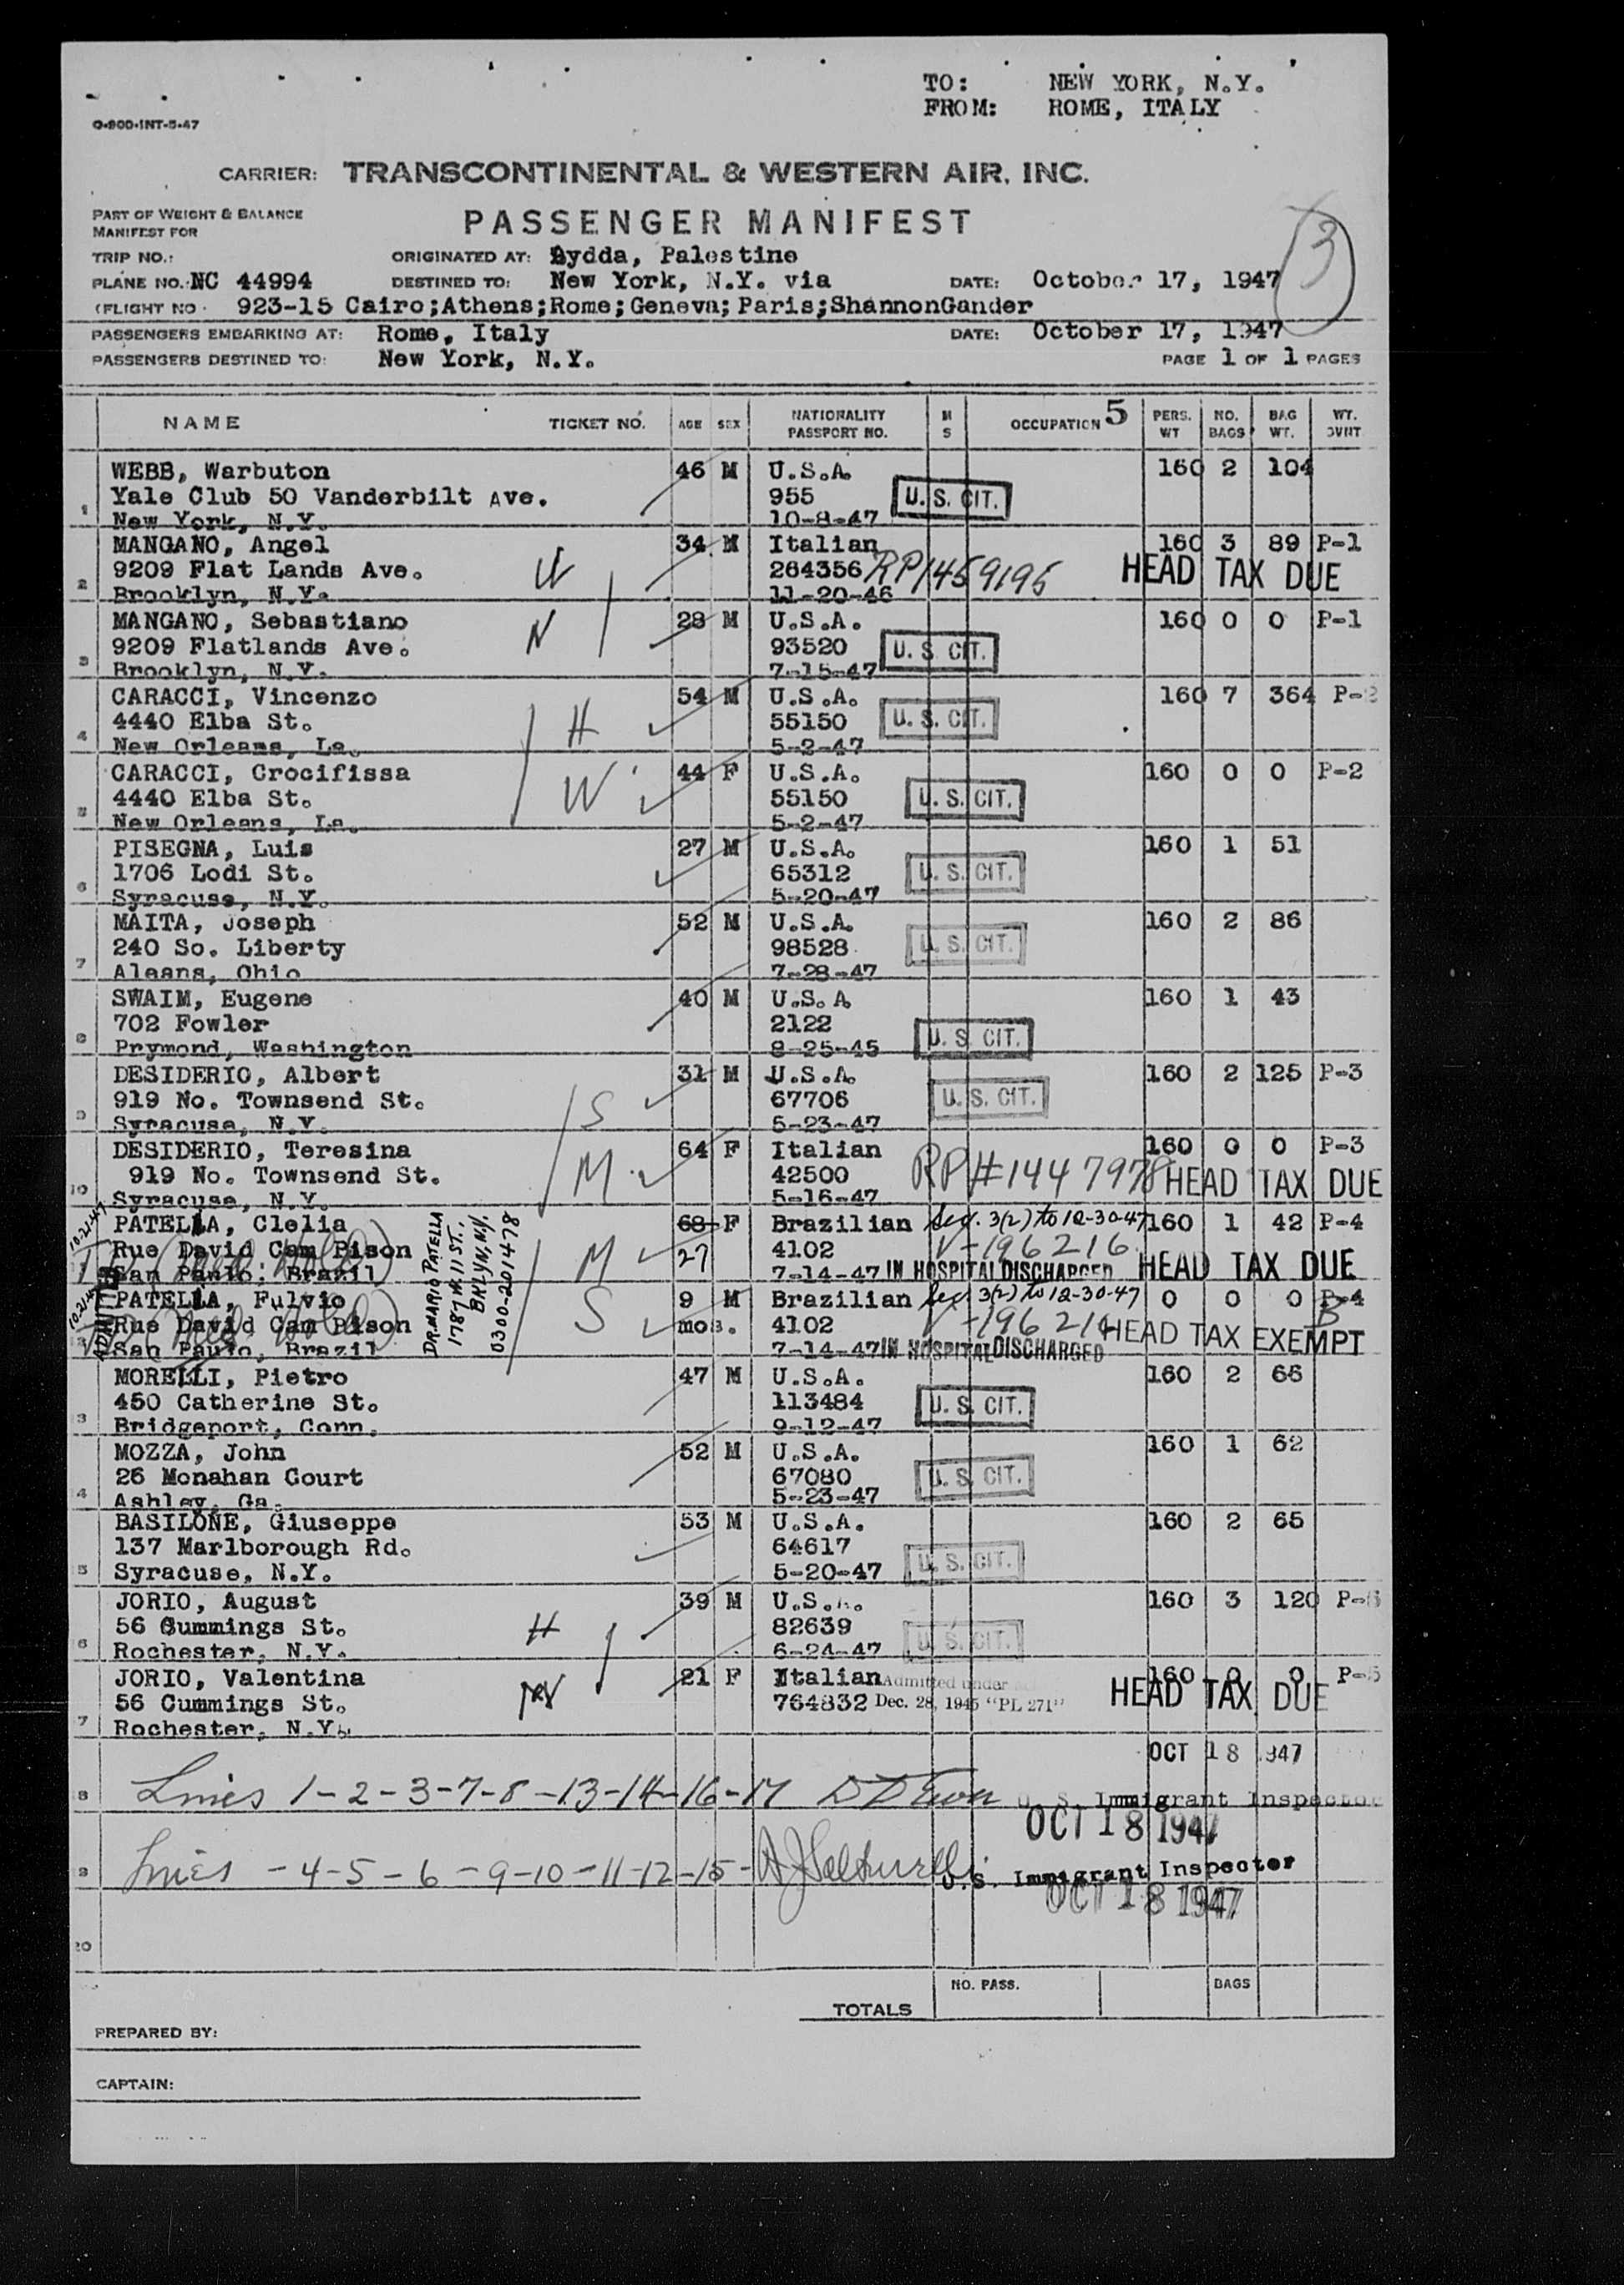 TO: NEW YORK, N.Y.
FROM: ROME, ITALY
O-900-INT-5-47
CARRIER: TRANSCONTINENTAL & WESTERN AIR, INC.
PART OF WEIGHT & BALANCE
MANIFEST FOR
PASSENGER MANIFEST
3
TRIP NO.: ORIGINATED AT: Lydda, Palestine
PLANE NO.: NC 44994 DESTINED TO: New York, N.Y. via DATE: October 17, 1947
(FLIGHT NO. 923-15 Cairo;Athens;Rome;Geneva; Paris;ShannonGander
PASSENGERS EMBARKING AT: Rome, Italy DATE: October 17, 1947
PASSENGERS DESTINED TO: New York, N.Y. PAGE 1 OF 1 PAGES
NAME TICKET NO. AGE SEX NATIONALITY PASSPORT NO. M S OCCUPATION 5 PERS. WT NO. BAGS BAG WT. WT. OVNT
1 WEBB, Warbuton 46 M U.S.A. 160 2 104
Yale Club 50 Vanderbilt Ave. 955 U. S. CIT.
New York, N.Y. 10-8-47
2 MANGANO, Angel 34 M Italian 160 3 89 P-1
9209 Flat Lands Ave. 264356 RP1459195 HEAD TAX DUE
Brooklyn, N.Y. 11-20-46
3 MANGANO, Sebastiano N 28 M U.S.A. 160 0 0 P-1
9209 Flatlands Ave. 93520 U. S. CIT.
Brooklyn, N.Y. 7-15-47
4 CARACCI, Vincenzo 54 M U.S.A. 160 7 364 P-2
4440 Elba St. H 55150 U. S. CIT.
New Orleans, La. 5-2-47
CARACCI, Crocifissa 44 F U.S.A. 160 0 0 P-2
4440 Elba St. W 55150 U. S. CIT.
New Orleans, La. 5-2-47
6 PISEGNA, Luis 27 M U.S.A. 160 1 51
1706 Lodi St. 65312 U. S. CIT.
Syracuse, N.Y. 5-20-47
7 MAITA, Joseph 52 M U.S.A. 160 2 86
240 So. Liberty 98528 U. S. CIT.
Aleans, Ohio 7-28-47
8 SWAIM, Eugene 40 M U.S.A 160 1 43
702 Fowler 2122 U. S. CIT.
Prymond, Washington 8-25-45
9 DESIDERIO, Albert 31 M U.S.A. 160 2 125 P-3
919 No. Townsend St. S 67706 U. S. CIT.
Syracuse, N.Y. 5-23-47
10 DESIDERIO, Teresina 64 F Italian 160 0 0 P-3
919 No. Townsend St. M 42500 RP#1447978 HEAD TAX DUE
Syracuse, N.Y. 5-16-47
10-21-47
PATELLA, Clelia 68 F Brazilian Sec. 3(2) to 12-30-47 160 1 42 P-4
Rue David Cam Pison M 27 4102 V-196216
San Paulo, Brazil 7-14-47 IN HOSPITAL DISCHARGED HEAD TAX DUE
DR. MARIO PATELLA
1787 W. 11 ST.
BKLYN, NY.
0300-201478
PATELLA, Fulvio 9 M Brazilian Sec 3(2) to 12-30-47 0 0 0 P-4
Rue David Cam Pison S mos. 4102 V-196214 HEAD TAX EXEMPT
San Paulo, Brazil 7-14-47 IN HOSPITAL DISCHARGED
ADMITTED
3 MORELLI, Pietro 47 M U.S.A. 160 2 66
450 Catherine St. 113484 U. S. CIT.
Bridgeport, Conn. 9-12-47
4 MOZZA, John 52 M U.S.A. 160 1 62
26 Monahan Court 67080 U. S. CIT.
Ashley, Ga. 5-23-47
5 BASILONE, Giuseppe 53 M U.S.A. 160 2 65
137 Marlborough Rd. 64617 U. S. CIT.
Syracuse, N.Y. 5-20-47
6 JORIO, August 39 M U.S.A. 160 3 120
56 Cummings St. H 82639 U. S. CIT.
Rochester, N.Y. 6-24-47
7 JORIO, Valentina 21 F Italian Admitted under 160 0 0 P-5
56 Cummings St. W 764832 Dec. 28, 1945 "PL 271" HEAD TAX DUE
Rochester, N.Y.
OCT 18 1947
8 Lines 1-2-3-7-8-13-14-16-17 U. S. Immigrant Inspector
OCT 18 1947
9 Lines -4-5-6-9-10-11-12-15- U.S. Immigrant Inspector
OCT 18 1947
20
TOTALS NO. PASS. BAGS
PREPARED BY:
CAPTAIN: